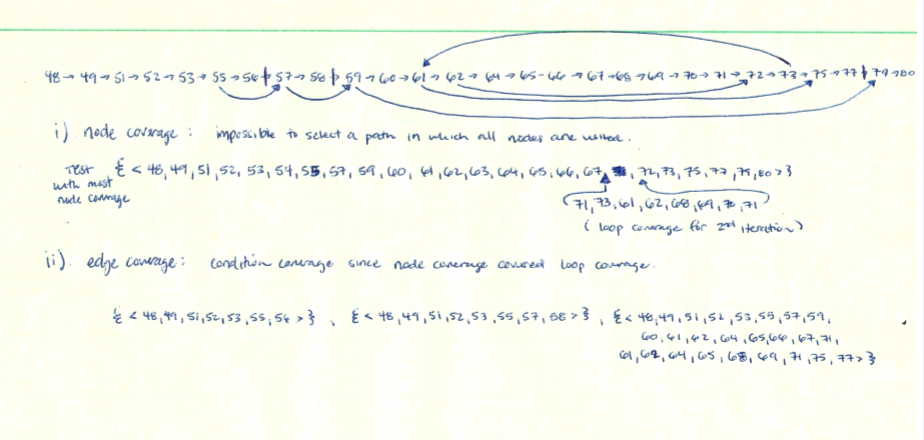 48→49→51→52→53→55→56 57→58 59→60→61→62→64→65-66→67→68→69→70→71→72→73→75→77 79→80
i) node coverage : impossible to select a path in which all nodes are visited.
Test with most node coverage { < 48,49,51,52,53,54,55,57,59,60,61,62,63,64,65,66,67, 72,73,75,77,79,80>}
71,73,61,62,68,69,70,71
(loop coverage for 2nd iteration)
ii). edge coverage: condition coverage since node coverage covered loop coverage.
{ < 48,49,51,52,53,55,56 >} , { < 48,49,51,52,53,55,57,58 >} , { < 48,49,51,52,53,55,57,59,
60,61,62,64,65,66,67,71,
61,62,64,65,68,69,71,75,77>}